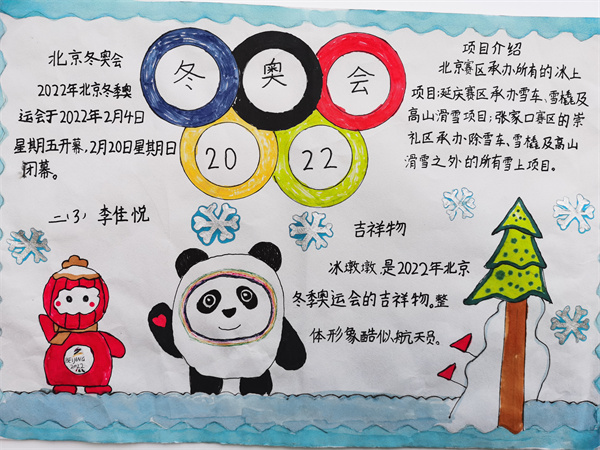 北京冬奥会
2022年北京冬季奥
运会于2022年2月4日
星期五开幕,2月20日星期日
闭幕。
二(3) 李佳悦
冬 奥 会
20 22
项目介绍
北京赛区承办所有的冰上
项目;延庆赛区承办雪车、雪橇及
高山滑雪项目;张家口赛区的崇
礼区承办除雪车、雪橇及高山
滑雪之外的所有雪上项目。
吉祥物
冰墩墩是2022年北京
冬季奥运会的吉祥物。整
体形象酷似航天员。
BEIJING
2022